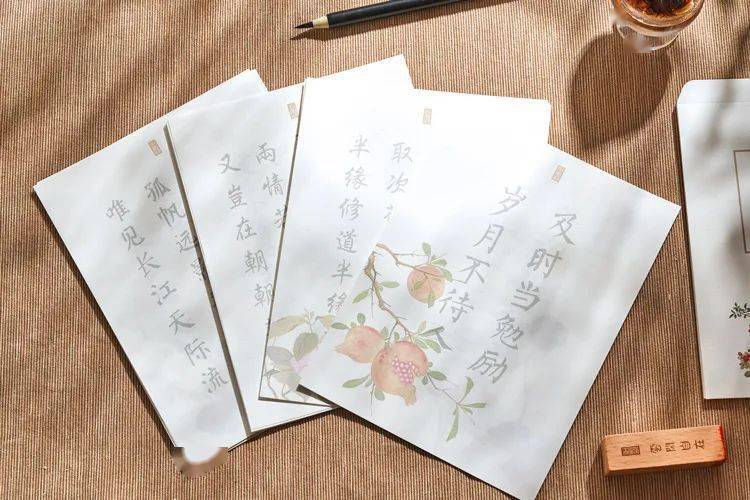 孤帆远
唯见长江天际流
兩情
又豈在朝朝
取次
半缘修道半缘
及时当勉励
岁月不待人